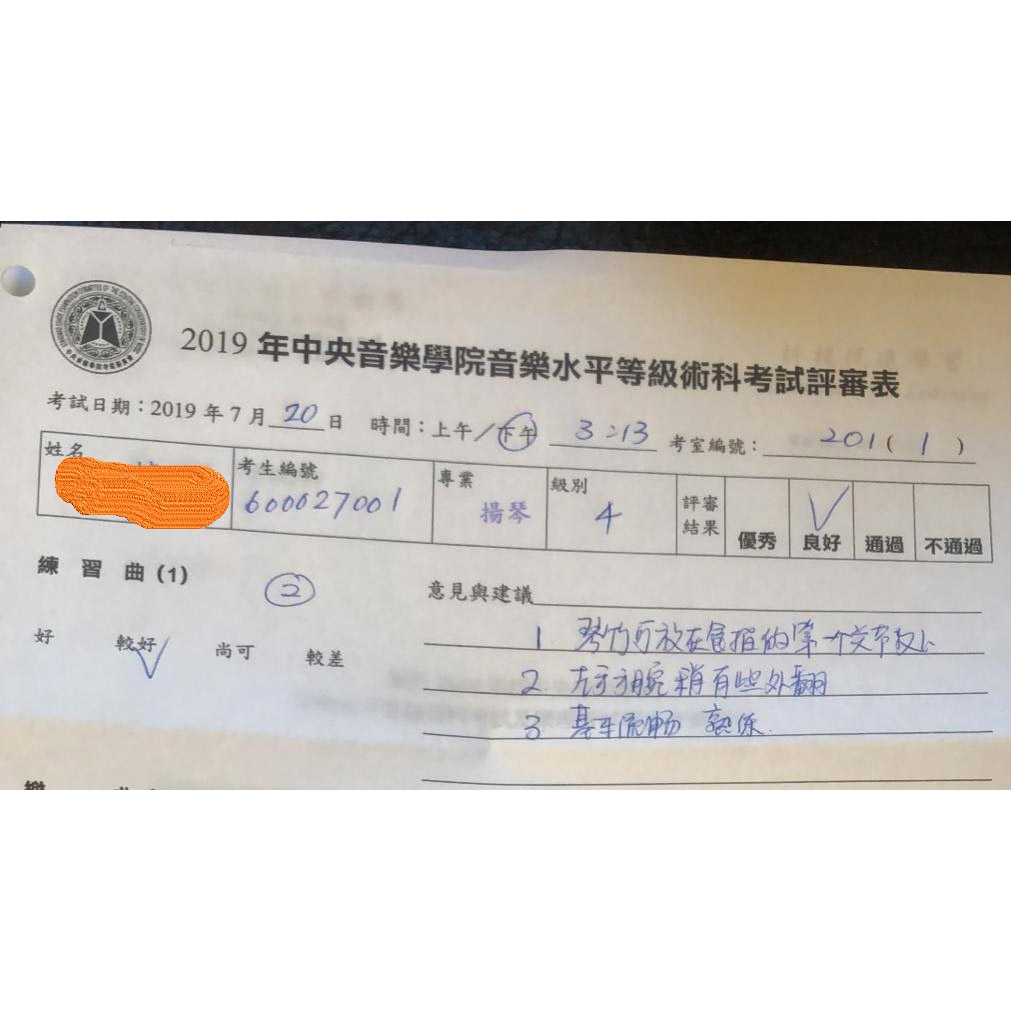 2019 年中央音樂學院音樂水平等級術科考試評審表
考試日期：2019 年 7 月 20 日 時間：上午／下午 3:13 考室編號：201( 1 )
姓名 考生編號 600027001 專業 揚琴 級別 4 評審結果 優秀 良好 通過 不通過
練習曲 (1) ② 意見與建議
好 較好 尚可 較差
1 琴竹可放在食指的第一个关节处
2. 左手手腕稍有些外翻
3 基本流畅 熟练.